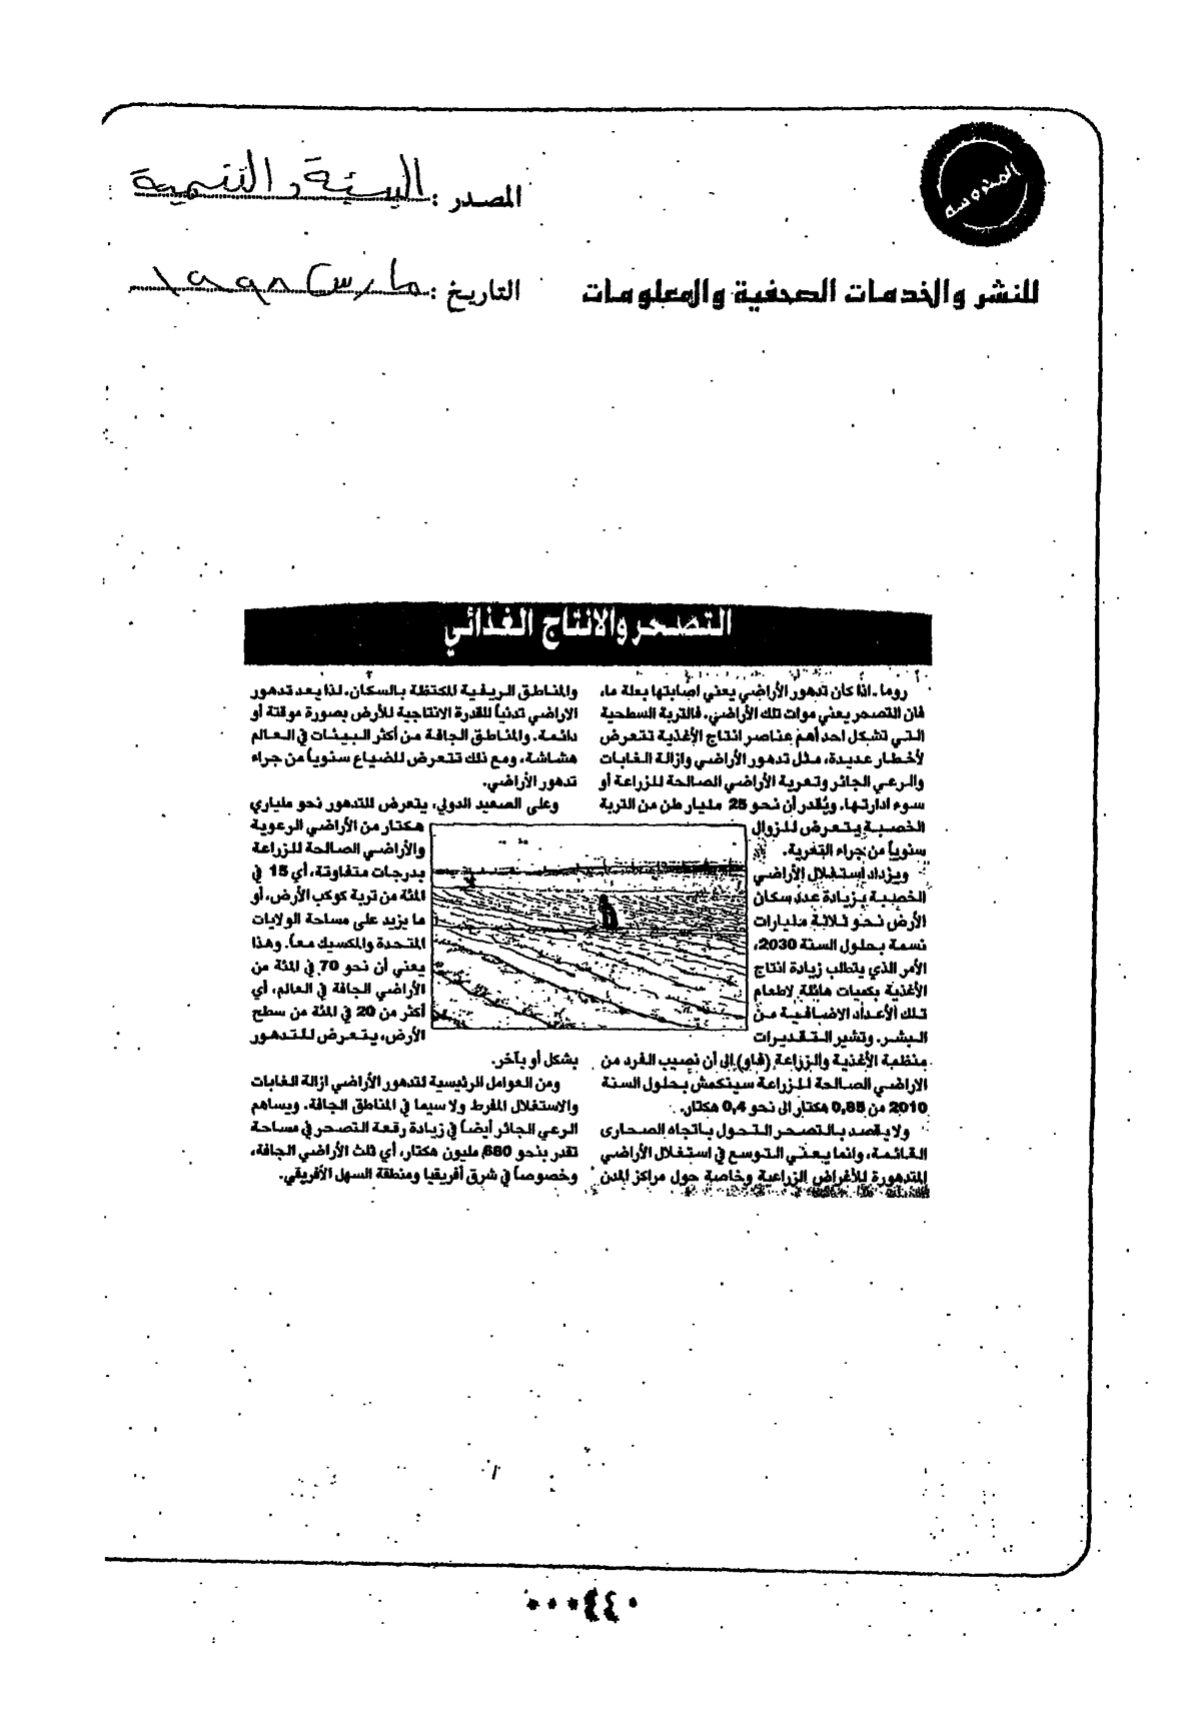 المحروسة
المصدر : البيئة والتنمية
للنشر والخدمات الصحفية والمعلومات
التاريخ : مارس ١٩٩٨
التصحر والانتاج الغذائي
روما ـ اذا كان تدهور الأراضي يعني اصابتها بعلة ما،
فان التصحر يعني موات تلك الأراضي. فالتربة السطحية
التي تشكل احد أهم عناصر انتاج الأغذية تتعرض
لأخطار عديدة، مثل تدهور الأراضي وازالة الغابات
والرعي الجائر وتعرية الأراضي الصالحة للزراعة أو
سوء ادارتها. ويُقدر أن نحو 25 مليار طن من التربة
الخصبة يتعرض للزوال
سنوياً من جراء التعرية.
ويزداد استغلال الأراضي
الخصبة بزيادة عدد سكان
الأرض نحو ثلاثة مليارات
نسمة بحلول السنة 2030،
الأمر الذي يتطلب زيادة انتاج
الأغذية بكميات هائلة لاطعام
تلك الأعداد الاضافية من
البشر. وتشير التقديرات
منظمة الأغذية والزراعة (فاو) إلى أن نصيب الفرد من
الاراضي الصالحة للزراعة سينكمش بحلول السنة
2010 من 0,85 هكتار الى نحو 0,4 هكتار.
ولا يقصد بالتصحر التحول باتجاه الصحارى
القائمة، وانما يعني التوسع في استغلال الأراضي
المتدهورة للأغراض الزراعية وخاصة حول مراكز المدن
والمناطق الريفية المكتظة بالسكان. لذا يعد تدهور
الاراضي تدنياً للقدرة الانتاجية للأرض بصورة موقتة أو
دائمة. والمناطق الجافة من أكثر البيئات في العالم
هشاشة، ومع ذلك تتعرض للضياع سنوياً من جراء
تدهور الأراضي.
وعلى الصعيد الدولي، يتعرض للتدهور نحو ملياري
هكتار من الأراضي الرعوية
والأراضي الصالحة للزراعة
بدرجات متفاوتة، أي 15 في
المئة من تربة كوكب الأرض، أو
ما يزيد على مساحة الولايات
المتحدة والمكسيك معاً. وهذا
يعني أن نحو 70 في المئة من
الأراضي الجافة في العالم، أي
أكثر من 20 في المئة من سطح
الأرض، يتعرض للتدهور
بشكل أو بآخر.
ومن العوامل الرئيسية لتدهور الأراضي ازالة الغابات
والاستغلال المفرط ولا سيما في المناطق الجافة. ويساهم
الرعي الجائر أيضاً في زيادة رقعة التصحر في مساحة
تقدر بنحو 680 مليون هكتار، أي ثلث الأراضي الجافة،
وخصوصاً في شرق أفريقيا ومنطقة السهل الأفريقي.
٠٠٠٤٤٠